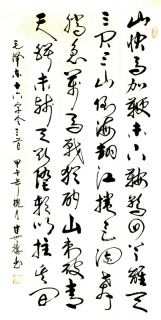 山快馬加鞭未下鞍驚回首離天
三尺三山倒海翻江捲巨澜奔
騰急萬馬戰猶酣山刺破青
天锷未残天欲堕賴以拄其间
毛澤東十六字令三首 甲午年